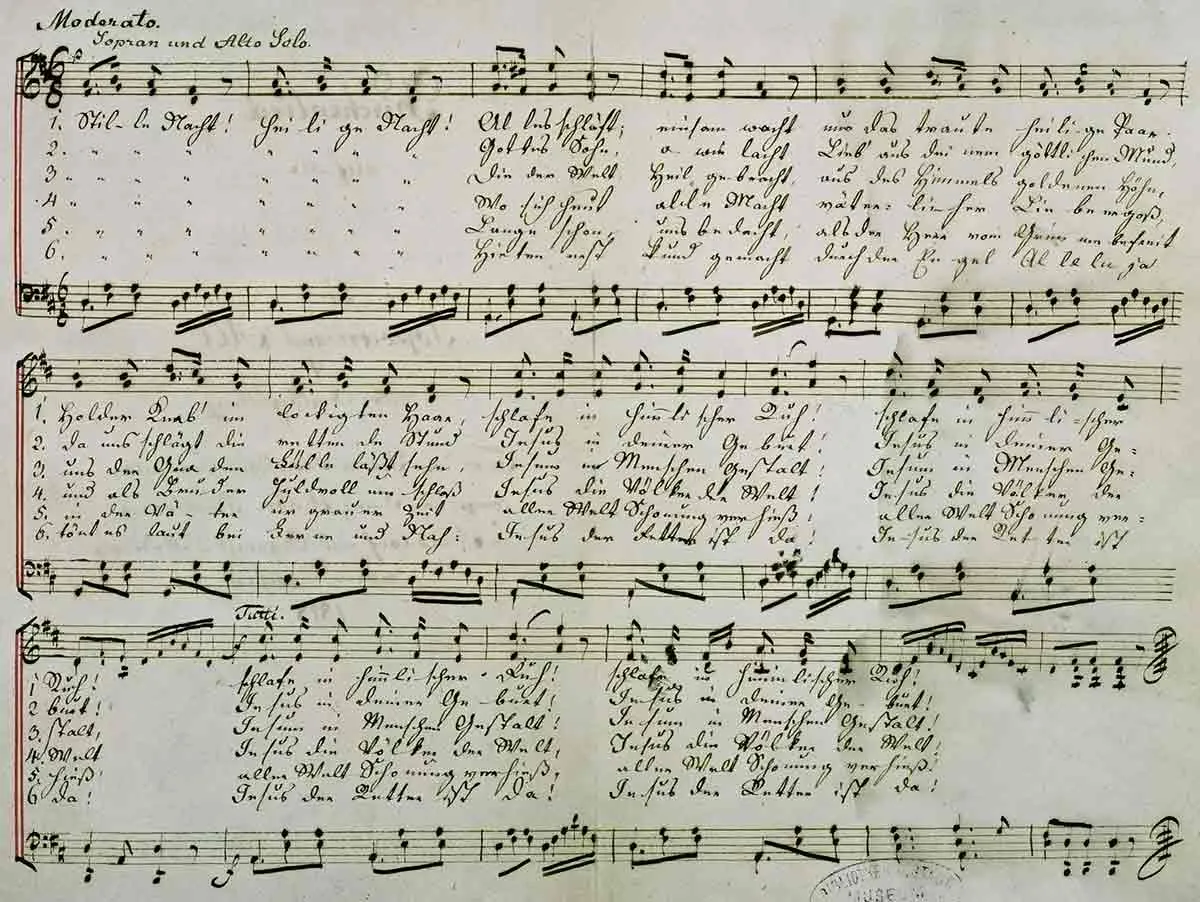 Moderato.
Sopran und Alto Solo.
1. Stil-le Nacht! Hei li ge Nacht! Al les schläft; einsam wacht nur das traute heili-ge Paar.
2. " " " " " " " Gottes Sohn, o wie lacht Lieb' aus dei nem göttli chen Mund,
3 " " " " " " " Die der Welt Heil gebracht, aus des Himmels goldenen Höhn,
4 " " " " " " " Wo sich heut alle Macht väter-licher Lie be ergoß,
5. " " " " " " " Lange schon, uns bedacht, als der Herr vom Grim me befreit
6. " " " " " " " Hirten erst kund gemacht durch der En gel Al le lu, ja
1. Holder Knab' im lockigten Haar, schlafe in himmli scher Ruh! schlafe in him li-scher
2. da uns schlägt die retten de Stund Jesus in deiner Ge burt! Jesus in deiner Ge-
3. uns der Gna den Fülle läßt sehn, Jesum in Menschen Gestalt, Jesum in Menschen Ge-
4. und als Bruder Huldvoll um schloß Jesus die Völker der Welt! Jesus die Völker der
5. in der Vä-ter ur grauer Zeit aller Welt Schonung verhieß, aller Welt Schonung ver-
6. tönt es laut bei Ferne und Nah: Jesus der Retter ist da! Je-sus der Ret-ter ist
Tutti.
1 Ruh! schlafe in himmlischer Ruh! schlafe in himmlischer Ruh!
2 burt! Jesus in deiner Ge-burt! Jesus in deiner Ge-burt!
3. stalt, Jesum in Menschen Gestalt! Jesum in Menschen Gestalt!
4. Welt Jesus die Völker der Welt, Jesus die Völker der Welt,
5. hieß aller Welt Schonung verhieß, aller Welt Schonung verhieß!
6 da! Jesus der Retter ist da! Jesus der Retter ist da!
f
MUSEUM